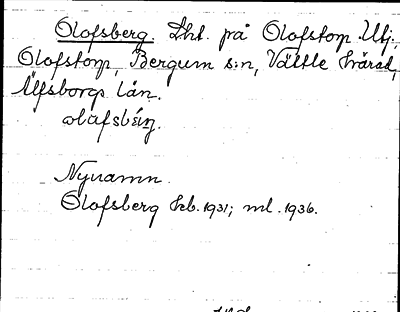 Olofsberg. Lht. på Olofstorp Utj.,
Olofstorp, Bergum s:n, Vättle härad,
Älfsborgs län.
olafsbærj.
Nynamn.
Olofsberg kb. 1931; ml. 1936.